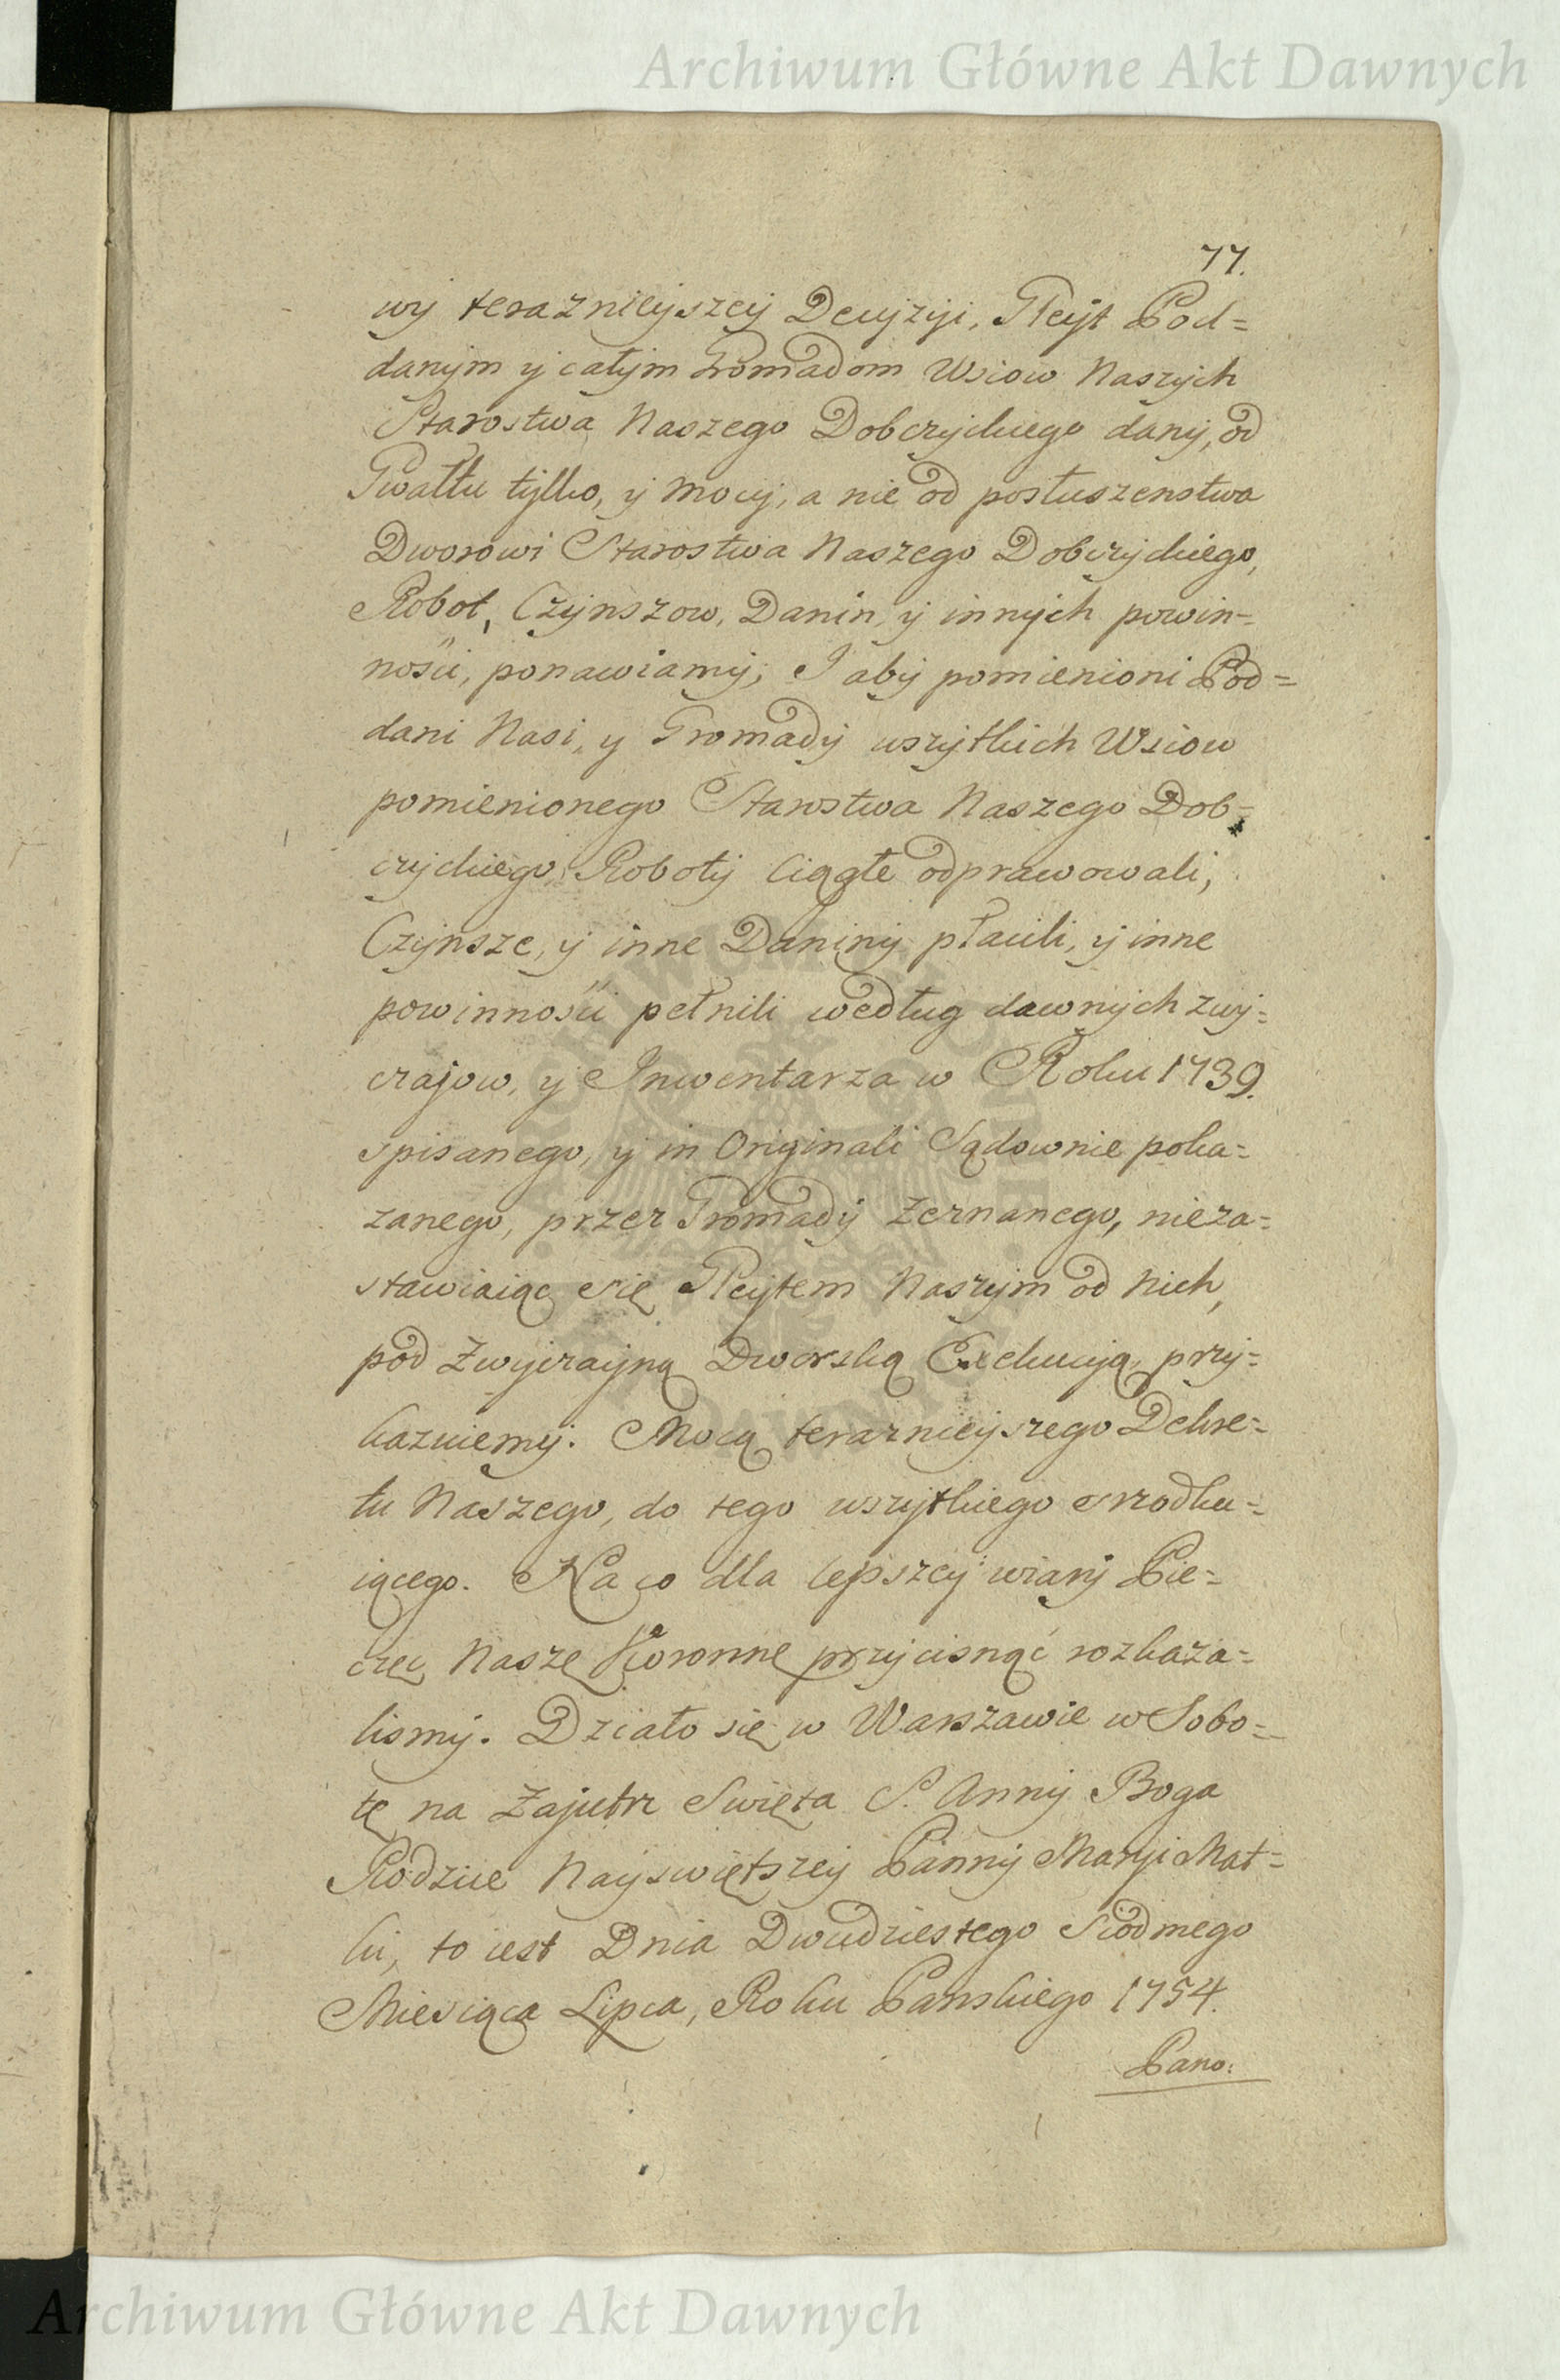 Archiwum Główne Akt Dawnych
77.
wy terazнieyszey Decyzyi, Gleyt Pod=
danym y całym Gromadom Wsiow Naszych
Starostwa Naszego Dobczyckiego dany, od
Gwałtu tylko, y mocy, a nie od posłuszenstwa
Dworowi Starostwa Naszego Dobczyckiego,
Robot, Czynszow, Danin, y innych powin=
ności, ponawiamy; I aby pomienioni Pod=
dani Nasi, y Gromady wszytkich Wsiow
pomienionego Starostwa Naszego Dob=
czyckiego, Roboty ciągłe odprawowali,
Czynsze, y inne Daniny płacili, y inne
powinności pełnili według dawnych zwy=
czajow, y Inwentarza w Roku 1739.
spisanego, y in Originali Sądownie poka=
zanego, przez Gromady zeznanego, nieza=
stawiaiąc się Gleytem Naszym od nich,
pod zwyczayną Dworską Exekucyą, przy=
kazuiemy. Mocą teraznieyszego Dekre=
tu Naszego, do tego wszytkiego srzodku=
iącego. Na co dla lepszey wiary Pie=
częć Naszę Koronnę przycisnąć rozkaza=
lismy. Działo się w Warszawie w Sobo=
tę na Zajutrz Swięta S. Anny Boga
Rodzice Nayswiętszey Panny Maryi Mat=
ki, to iest Dnia Dwudziestego Siodmego
Miesiąca Lipca, Roku Panskiego 1754.
Pano:
Archiwum Główne Akt Dawnych